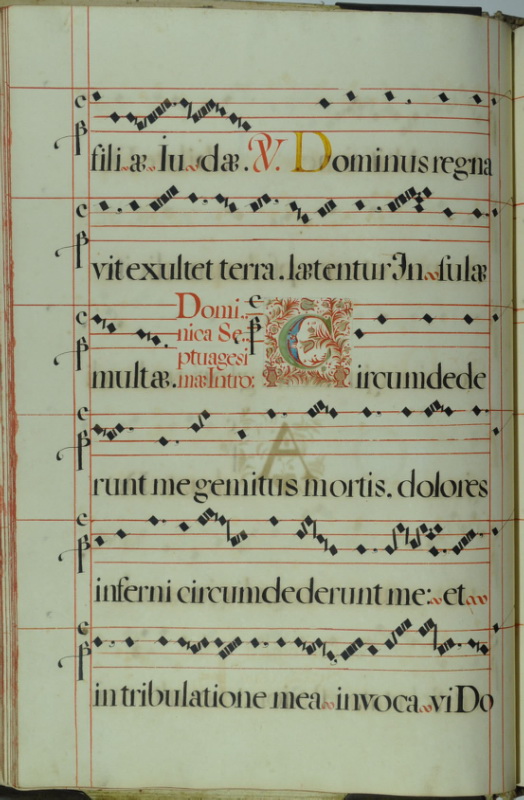 filiæ Iudæ. V. Dominus regna
vit exultet terra. lætentur Insulæ
Domi
nica Se
ptuagesi
mæ Intro:
multæ. Circumdede
runt me gemitus mortis. dolores
inferni circumdederunt me: et
in tribulatione mea invocavi Do